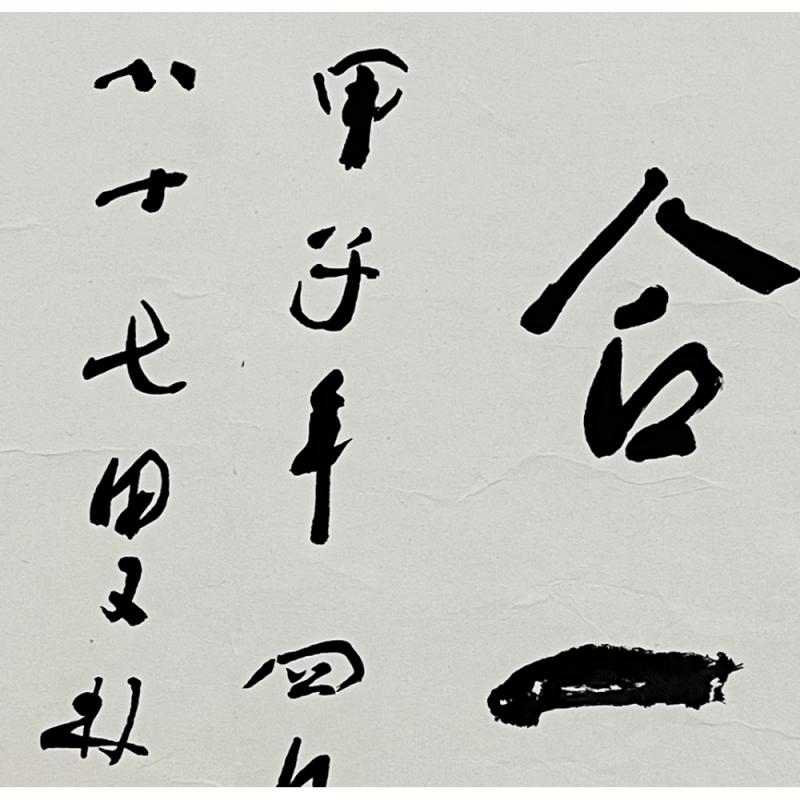 合一
甲子年四
八十七叟林